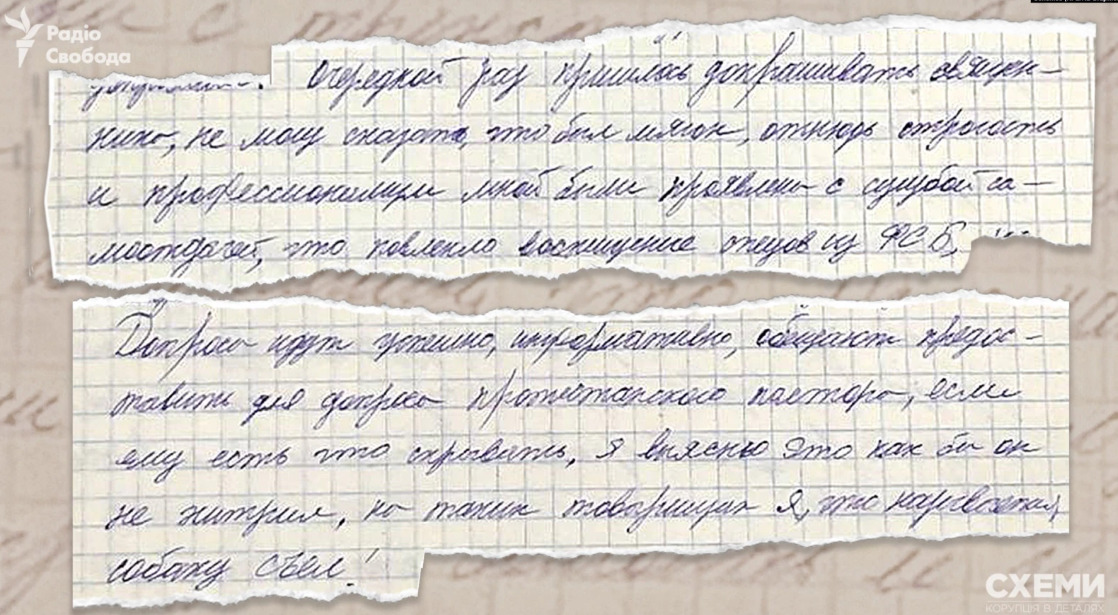 Радіо
Свобода
Очередной раз пришлось допрашивать священ-
ника, не могу сказать, что был мягок, отнюдь строгость
и профессионализм мной были проявлены с сугубой са-
моотдачей, что повлекло восхищение спецов из ФСБ,
Допросы идут успешно, информативно, обещают предос-
тавить для допроса протестанского пастора, если
ему есть что скрывать, я выясню это как бы он
не хитрил, на таких товарищах я, что называется,
собаку съел!
СХЕМИ
КОРУПЦІЯ В ДЕТАЛЯХ